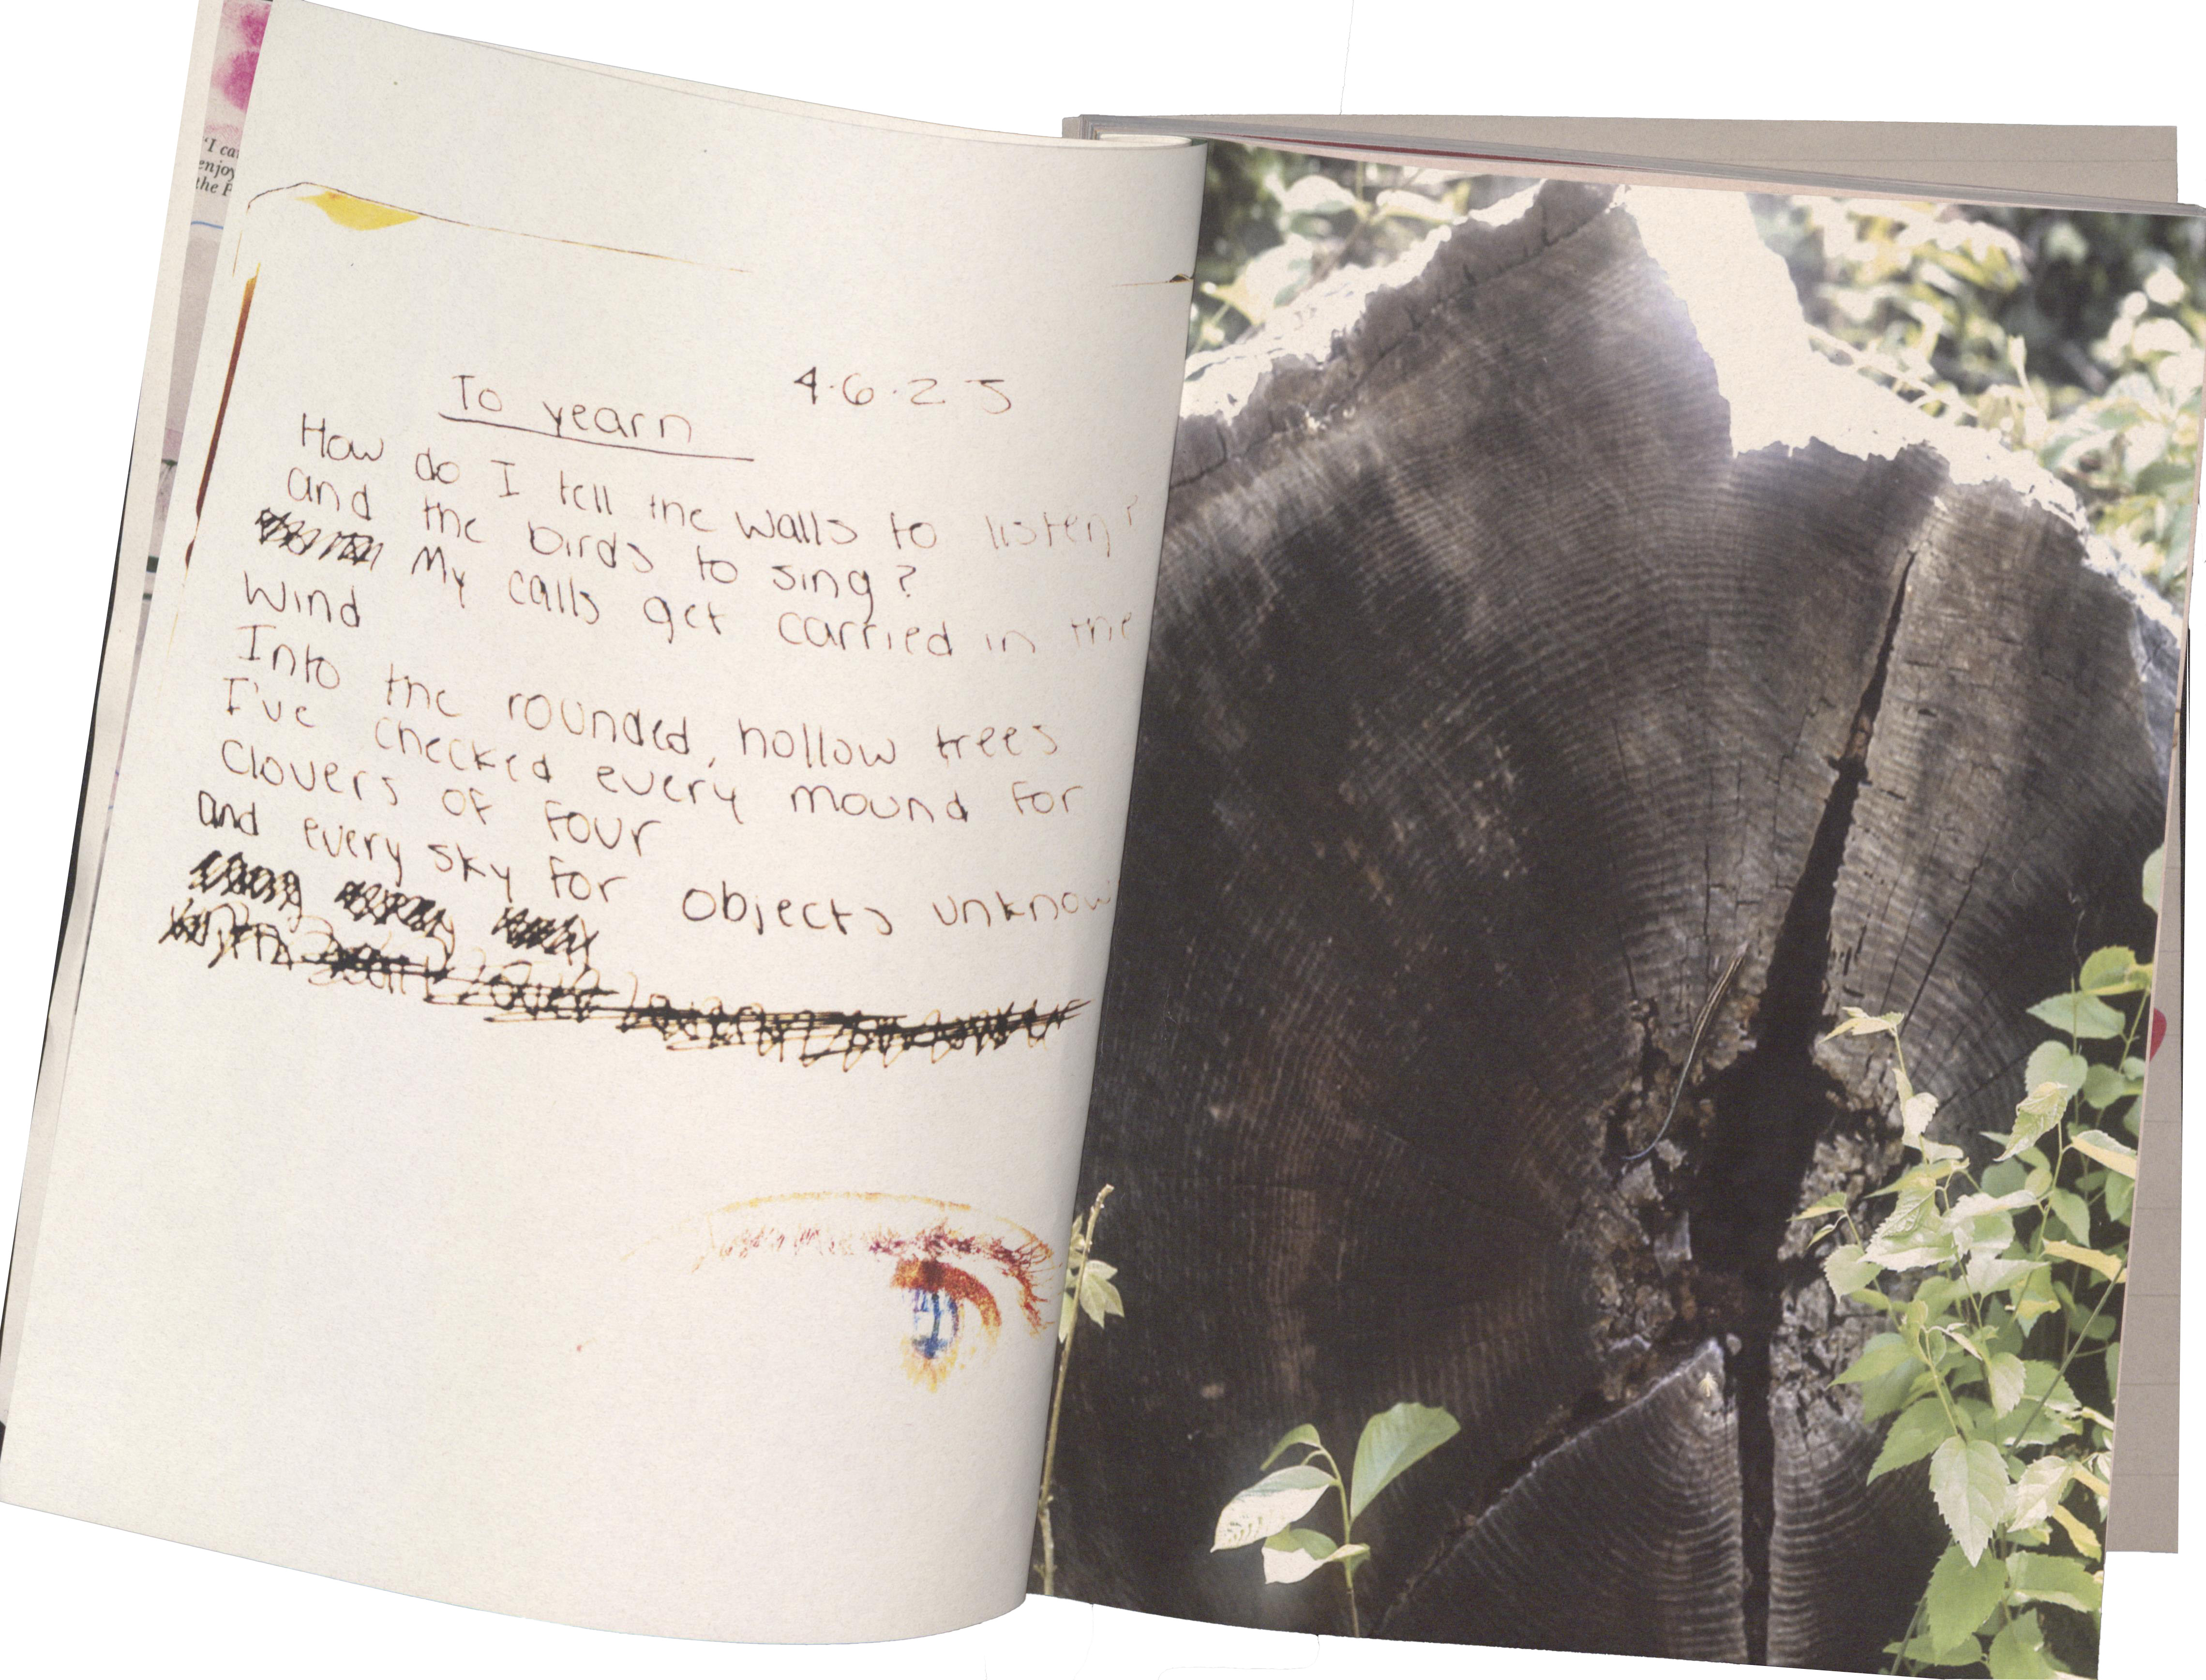 "I ca
enjoy
the F
To yearn
4.6.25
How do I tell the walls to listen?
and the birds to sing?
My calls get carried in the
wind
Into the rounded, hollow trees
I've checked every mound for
Clovers of four
and every sky for objects unknow